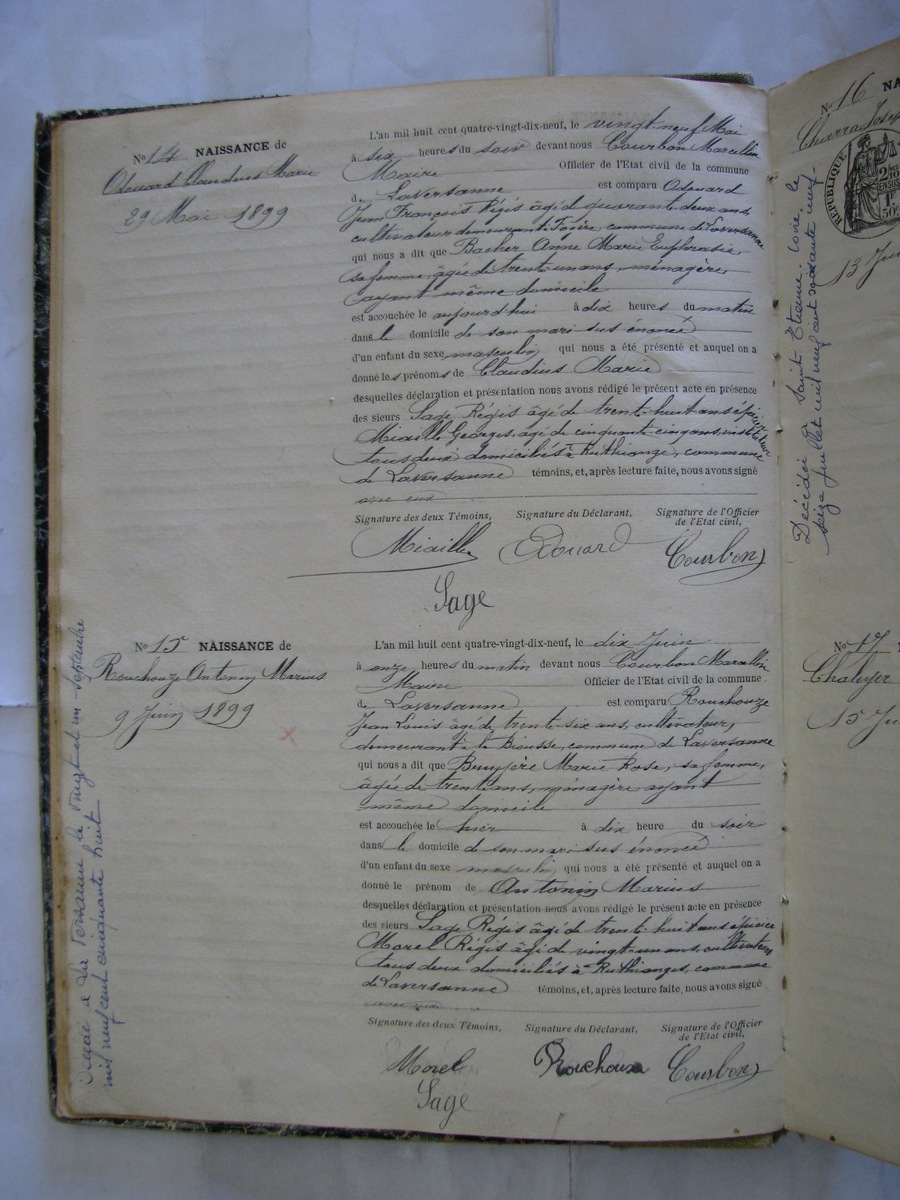 No 14 NAISSANCE de
Odouard Claudius Marie
29 Mai 1899
L'an mil huit cent quatre-vingt-dix-neuf, le vingt neuf Mai
à six heures du soir devant nous Courbon Marcellin
Maire Officier de l'Etat civil de la commune
de Laversanne est comparu Odouard
Jean François Régis âgé de quarante deux ans,
cultivateur demeurant à commune de Laversanne
qui nous a dit que Bacher Anne Marie Euphrasie,
sa femme, âgée de trente un ans, ménagère,
ayant même domicile
est accouchée le aujourd'hui à dix heures du matin
dans le domicile de son mari sus énoncé
d'un enfant du sexe masculin qui nous a été présenté et auquel on a
donné les prénoms de Claudius Marie
desquelles déclaration et présentation nous avons rédigé le présent acte en présence
des sieurs Sage Régis âgé de trente huit ans épicier
Miaille Georges, âgé de cinquante cinq ans, instituteur
tous deux domiciliés à Ruthianges, commune
de Laversanne témoins, et, après lecture faite, nous avons signé
avec eux
Signature des deux Témoins, Signature du Déclarant, Signature de l'Officier
de l'Etat civil,
Miaille Odouard Courbon
Sage
No 15 NAISSANCE de
Rouchouze Antonin Marius
9 Juin 1899
L'an mil huit cent quatre-vingt-dix-neuf, le dix Juin
à onze heures du matin devant nous Courbon Marcellin
Maire Officier de l'Etat civil de la commune
de Laversanne est comparu Rouchouze
Jean Louis âgé de trente six ans, cultivateur,
demeurant à la commune de Laversanne
qui nous a dit que Bruyère Marie Rose, sa femme,
âgée de trente ans, ménagère ayant
même domicile
est accouchée le hier à dix heure du soir
dans le domicile de son mari sus énoncé
d'un enfant du sexe masculin qui nous a été présenté et auquel on a
donné le prénom de Antonin Marius
desquelles déclaration et présentation nous avons rédigé le présent acte en présence
des sieurs Sage Régis âgé de trente huit ans épicier
Morel Régis âgé de vingt un ans, cultivateur
tous deux domiciliés à Ruthianges, commune
de Laversanne témoins, et, après lecture faite, nous avons signé
avec eux
Signature des deux Témoins, Signature du Déclarant, Signature de l'Officier
de l'Etat civil,
Morel Rouchouze Courbon
Sage
Décédé à La Versanne le vingt et un septembre
mil neuf cent cinquante huit
No 16 NA
Charra Josep
RÉPUBLIQUE
13 Jui
Décédé à Saint Etienne Loire le
seize juillet mil neuf cent soixante neuf.
No 17
Chaleyer
15 Ju